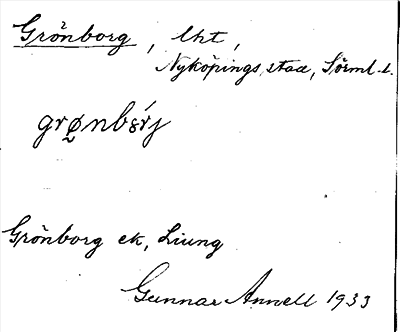 Grönborg, lht,
Nyköpings stad, Sörml. l.
grø̠nbȣrj
Grönborg ek, Liung
Gunnar Annell 1933